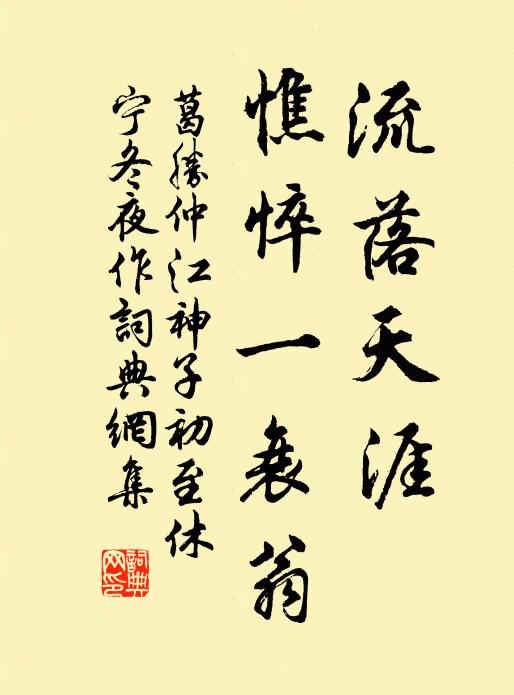 流落天涯
憔悴一衰翁
葛勝仲江神子初至休
宁冬夜作詞典網集
詞典网印